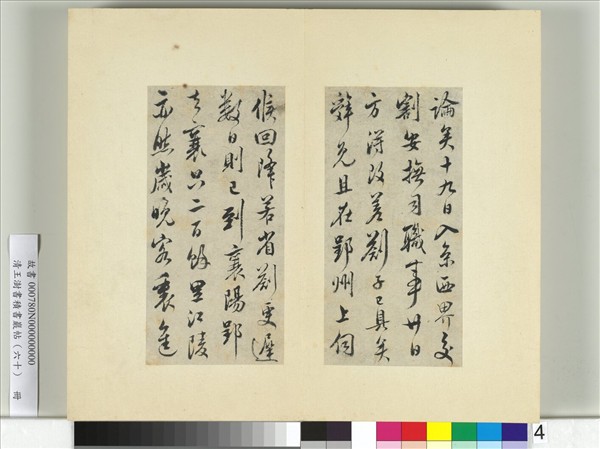 論矣十九日入京西界交
割安撫司職事廿日
方得改差劄子已具
辭免且在郢州上伺
候回降若省劄更遲
數日則已到襄陽郢
去襄只二百餘里江陵
亦然歲晚客裏進
故書 000780N000000000
清王澍書積書巖帖(六十) 冊
4